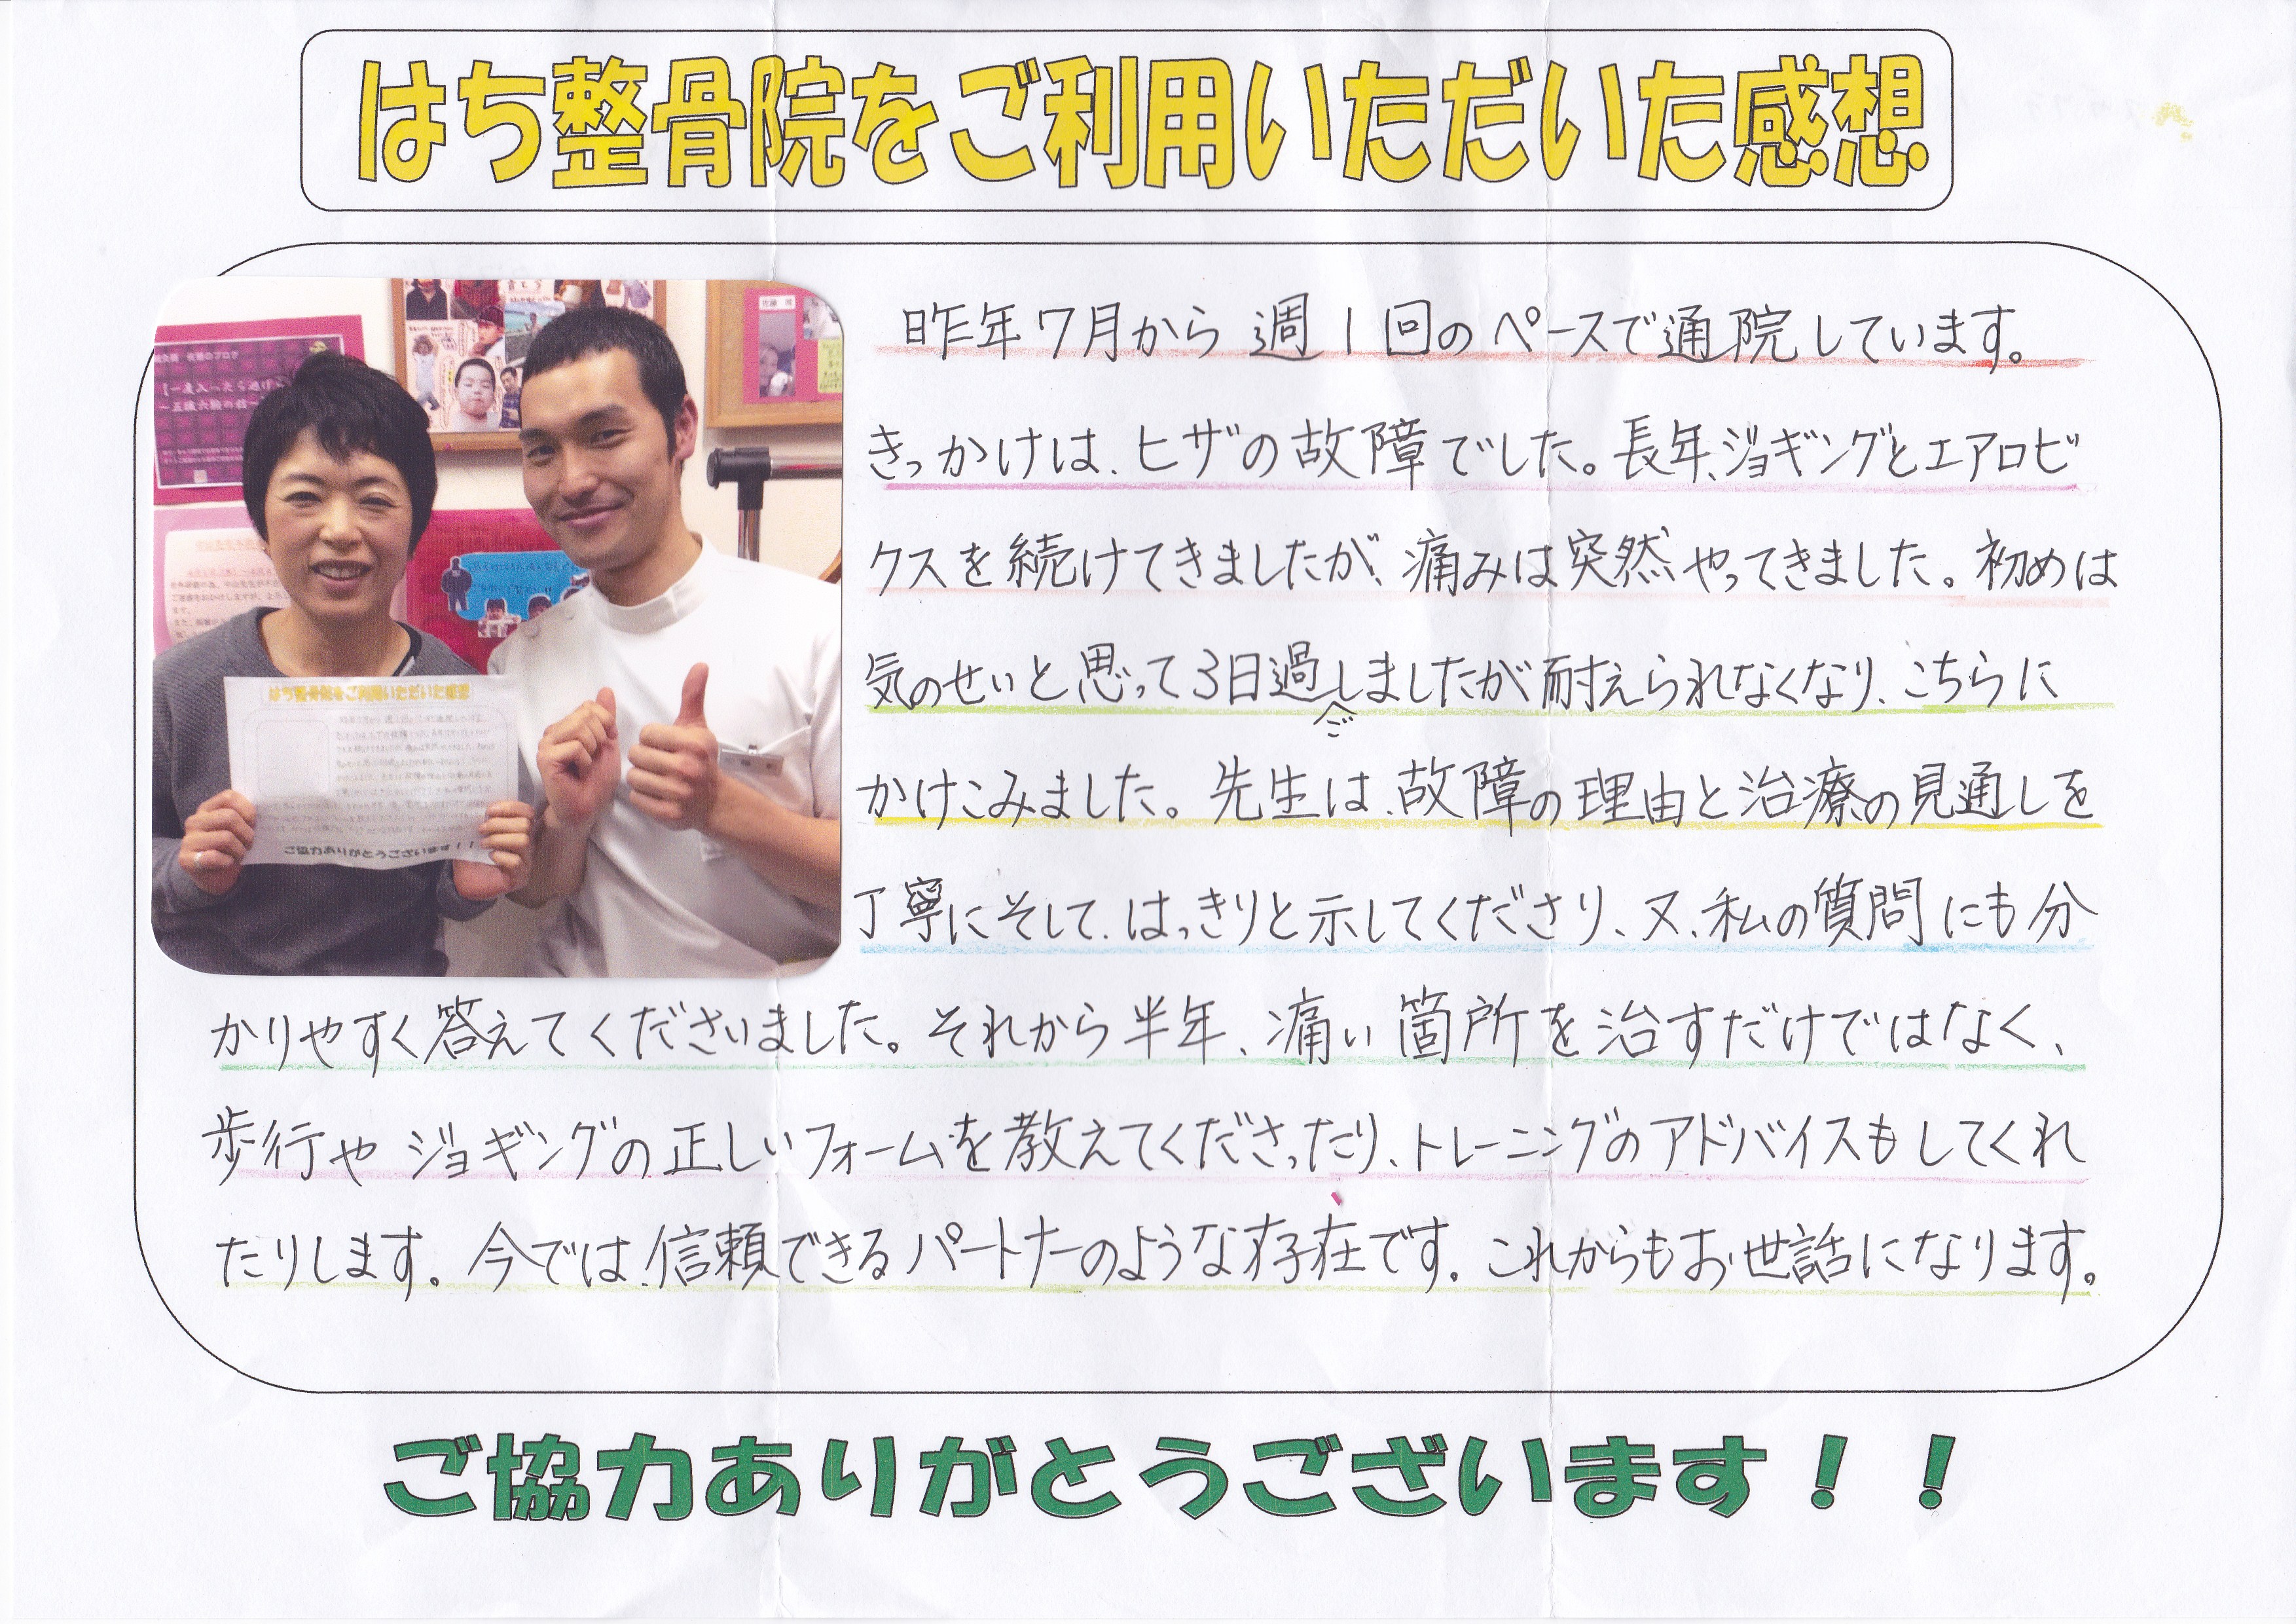 はち整骨院をご利用いただいた感想
昨年7月から週1回のペースで通院しています。
きっかけは、ヒザの故障でした。長年、ジョギングとエアロビ
クスを続けてきましたが、痛みは突然やってきました。初めは
気のせいと思って3日過しましたが耐えられなくなり、こちらに
ご
かけこみました。先生は、故障の理由と治療の見通しを
丁寧にそして、はっきりと示してくださり、又、私の質問にも分
かりやすく答えてくださいました。それから半年、痛い箇所を治すだけではなく、
歩行やジョギングの正しいフォームを教えてくださったり、トレーニングのアドバイスもしてくれ
たりします。今では、信頼できるパートナーのような存在です。これからもお世話になります。
ご協力ありがとうございます！！
はち整骨院をご利用いただいた感想
ご協力ありがとうございます！！